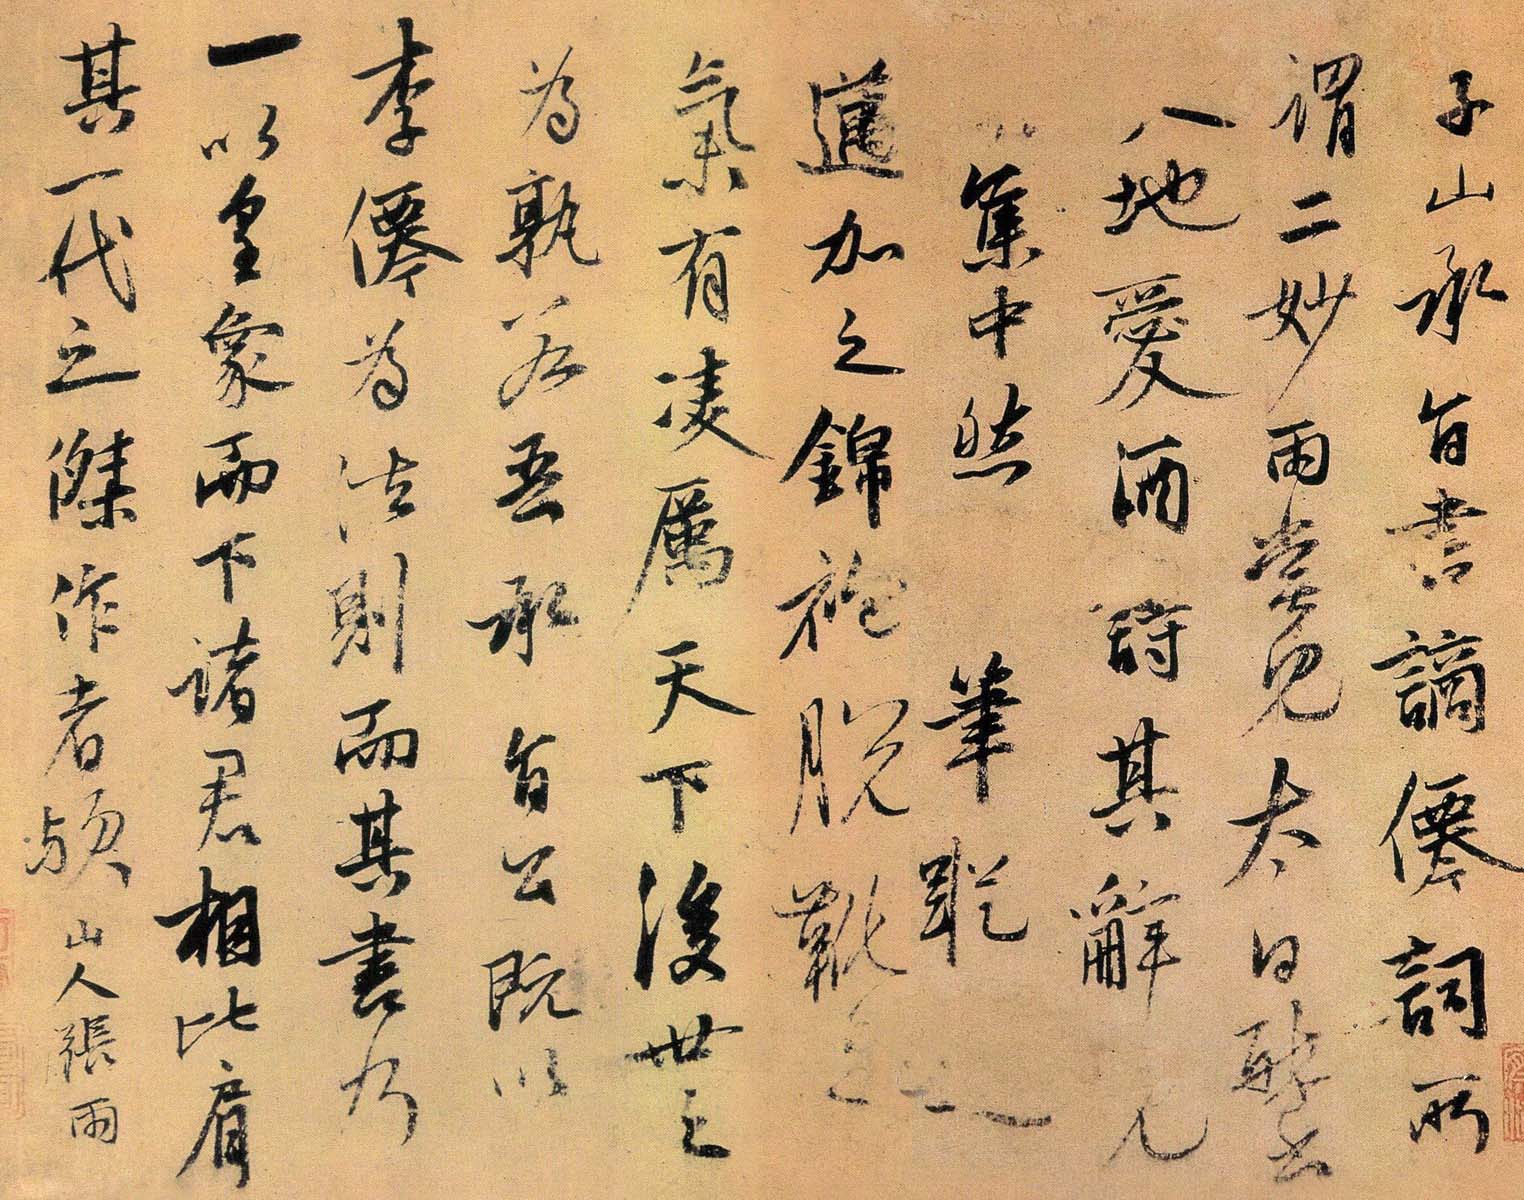 子山承旨書謫僊詞所
謂二妙兩當見太白醉
八地愛酒時其辭見
集中然 筆蹤
邁加之錦袍脫靴
氣有凌厲天下後世之
為孰若吾承旨公既以
李僊為法則而其書乃
一以皇象而下諸君相比肩
其一代之傑作者歟山人張雨